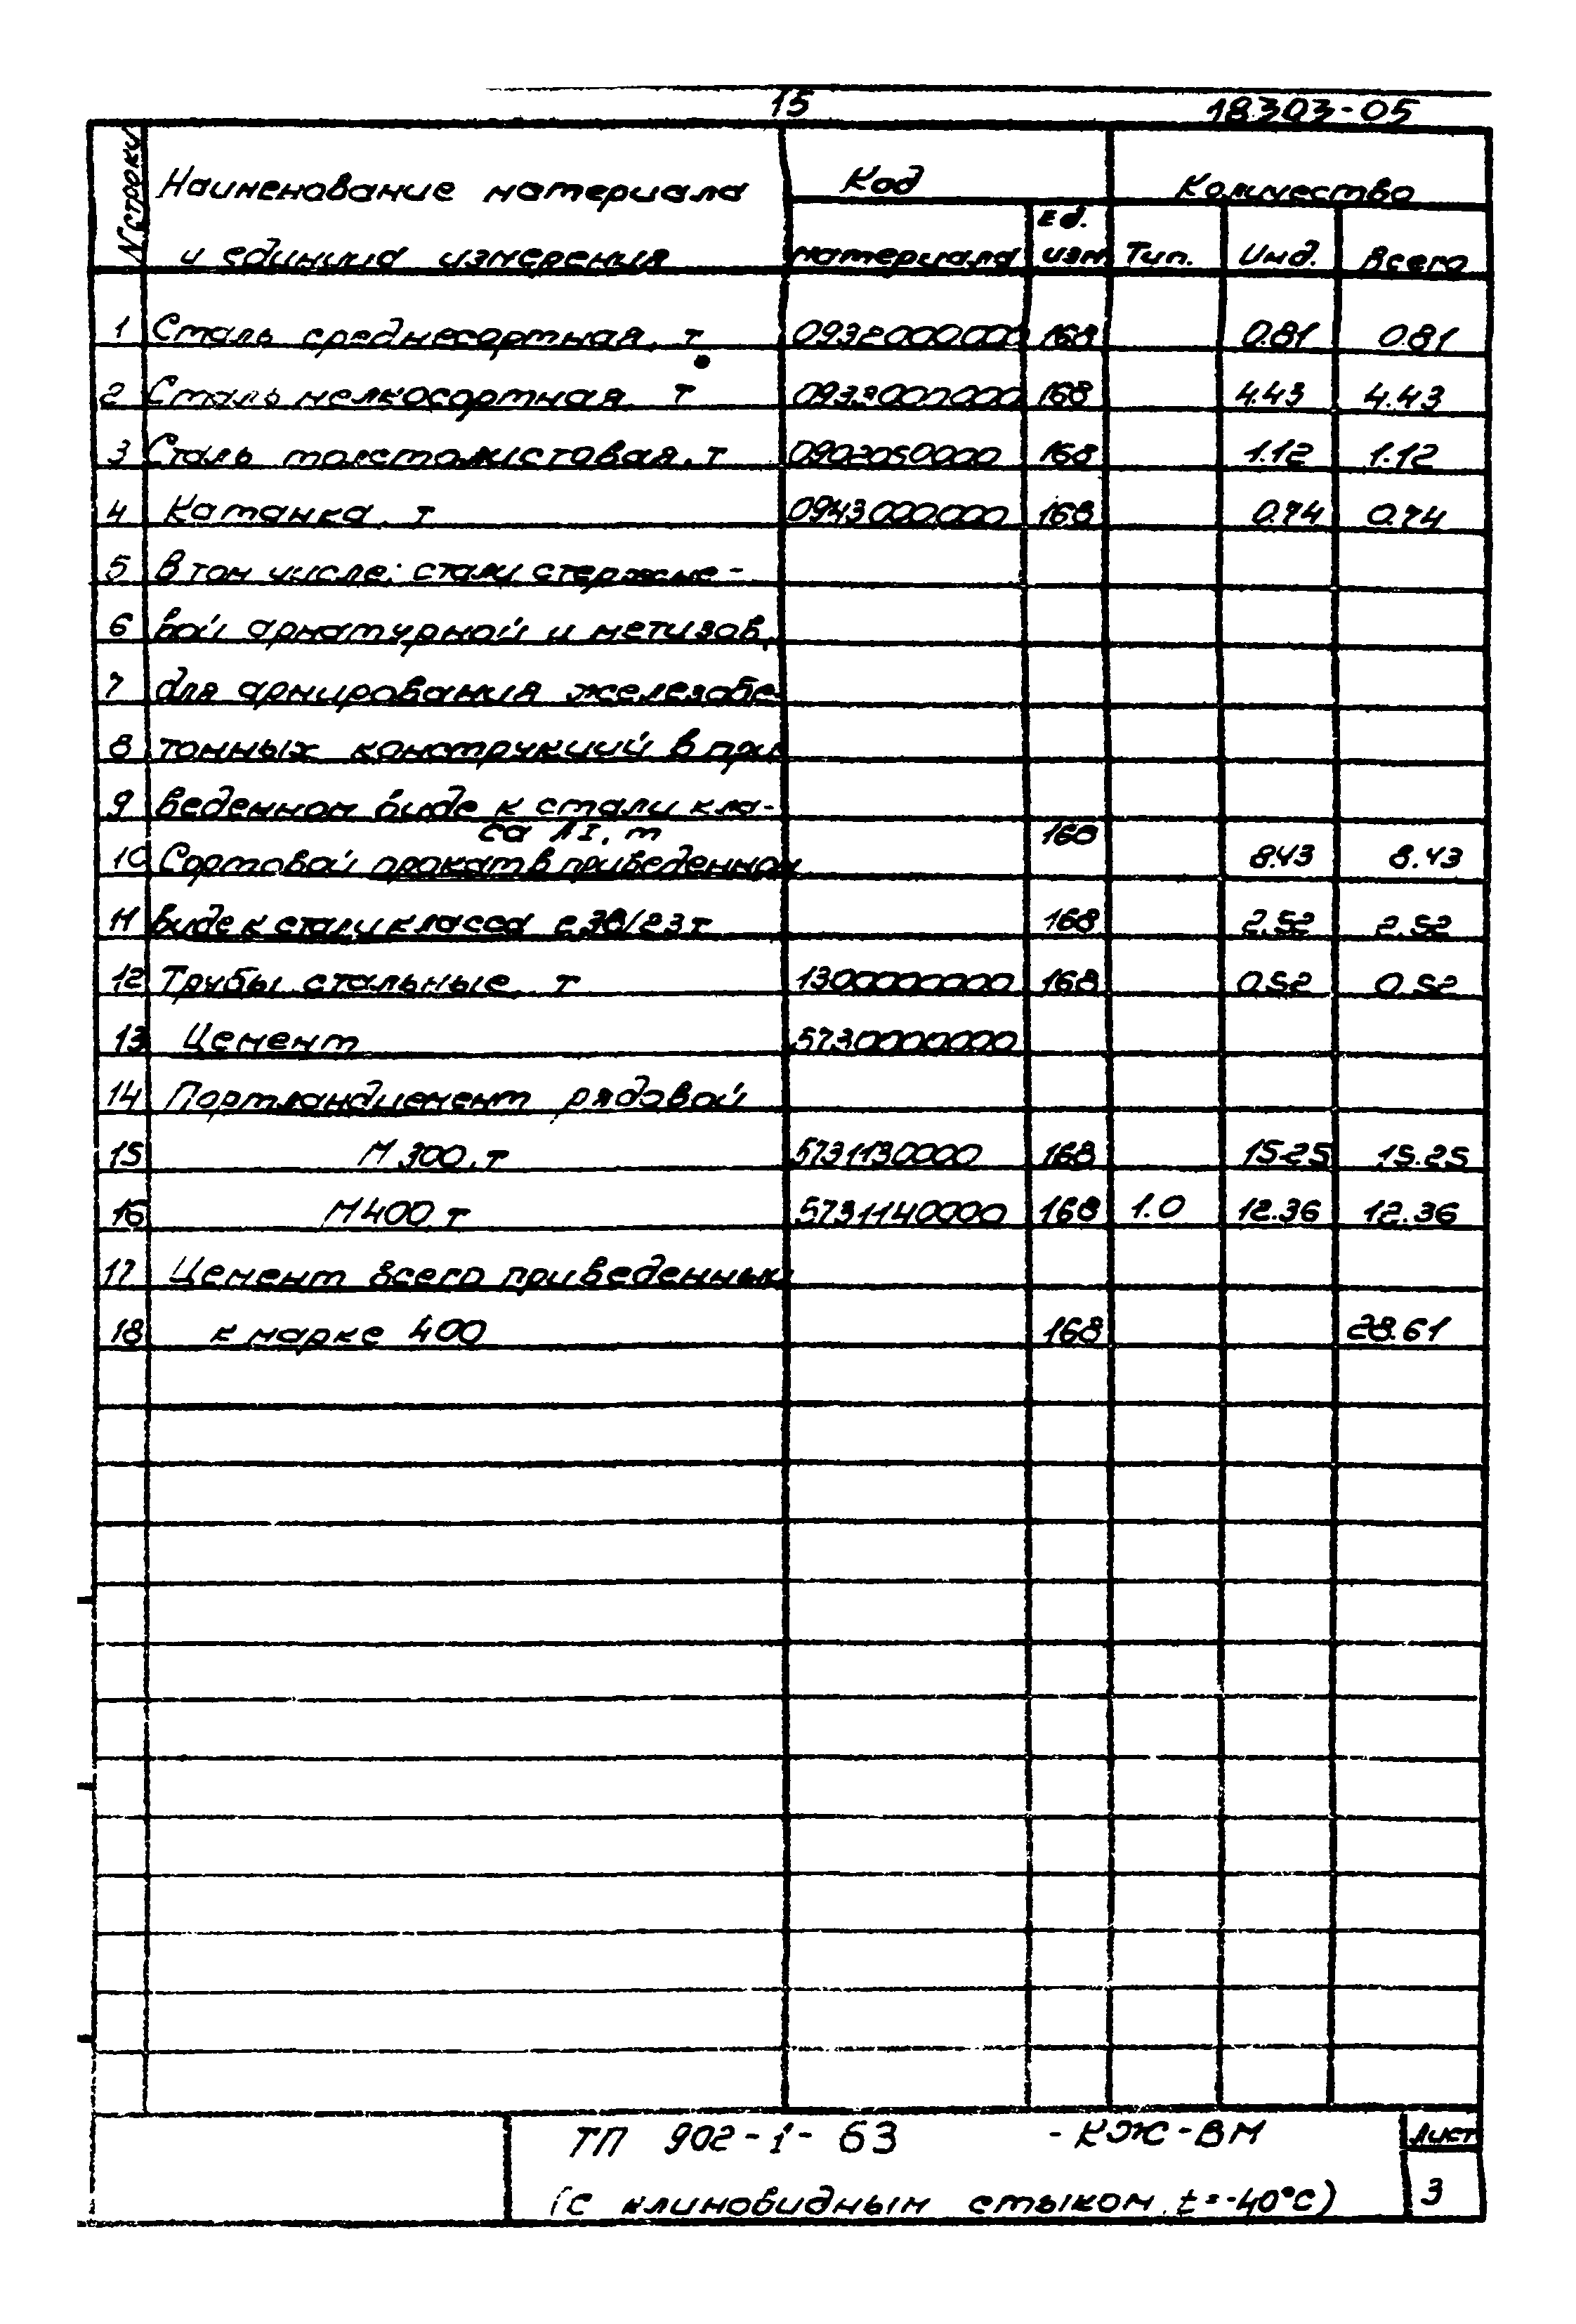 15 18303-05
N строки Наименование материала Код Количество
и единица измерения материала Ед. изм Тип. Инд. Всего
1 Сталь среднесортная, т 0932000000 168 0.81 0.81
2 Сталь мелкосортная т 0933000000 168 4.43 4.43
3 Сталь толстолистовая, т 0902050000 168 1.12 1.12
4 Катанка, т 0943000000 168 0.74 0.74
5 В том числе: стали стержне-
6 вой арматурной и метизов,
7 для армирования железобе-
8 тонных конструкций в при
9 веденном виде к стали кла-
са АI, т 168
10 Сортовой прокат в приведенном 8.43 8.43
11 виде к стали класса с38/23 т 168 2.52 2.52
12 Трубы стальные, т 1300000000 168 0.52 0.52
13 Цемент 5730000000
14 Портландцемент рядовой
15 М 300, т 5731130000 168 15.25 15.25
16 М400 т 5731140000 168 1.0 12.36 12.36
17 Цемент всего приведенных
18 к марке 400 168 28.61
ТП 902-1-63 -КЖ-ВМ Лист
(с клиновидным стыком t=-40°С) 3